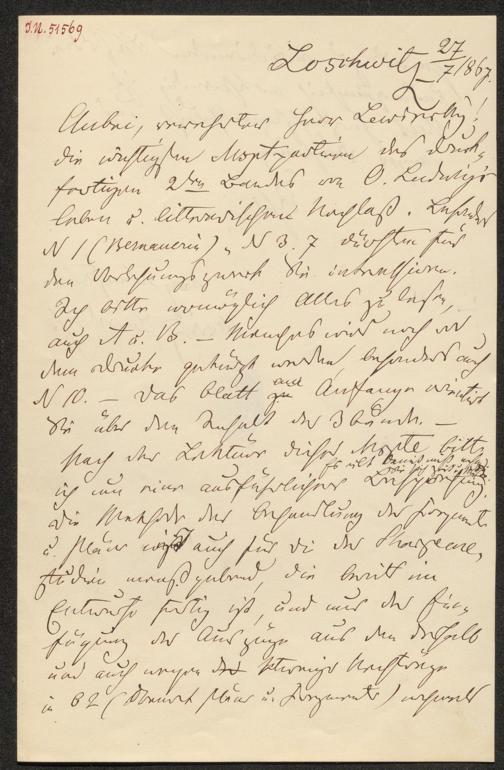 J.N. 51569
Loschwitz 27/7 1867.
Anbei, verehrter Herr Lewinsky!
die wichtigsten Manuspartieen des druck-
fertigen 2ten Bandes von O. Ludwig's
Leben u. litterarischem Nachlaß. Besonders
N 1 (Bernauerin) u. N 3. 7 dürften für
den Vorlesungszweck Sie interessieren.
Ich bitte womöglich Alles zu lesen,
auch A u. B. — Manches wird noch vor
dem Drucke gekürzt werden, besonders auch
N 10. — Das Blatt am Anfange orientirt
Sie über den Inhalt der 3 Bände. —
Nach der Lektüre dieser bitte
ich um eine ausführlichere Besprechung.
Die Methode der Behandlung der Fragmente
u. Pläne auch für die der Shakespeare-
studien maaßgebend, die bereits im
Entwurfe fertig ist, und nur der Ein-
fügung der Auszüge aus den deshalb
und auch wegen Nachträge
in B 2 (Dramat. Pläne u. Fragmente) nochmals